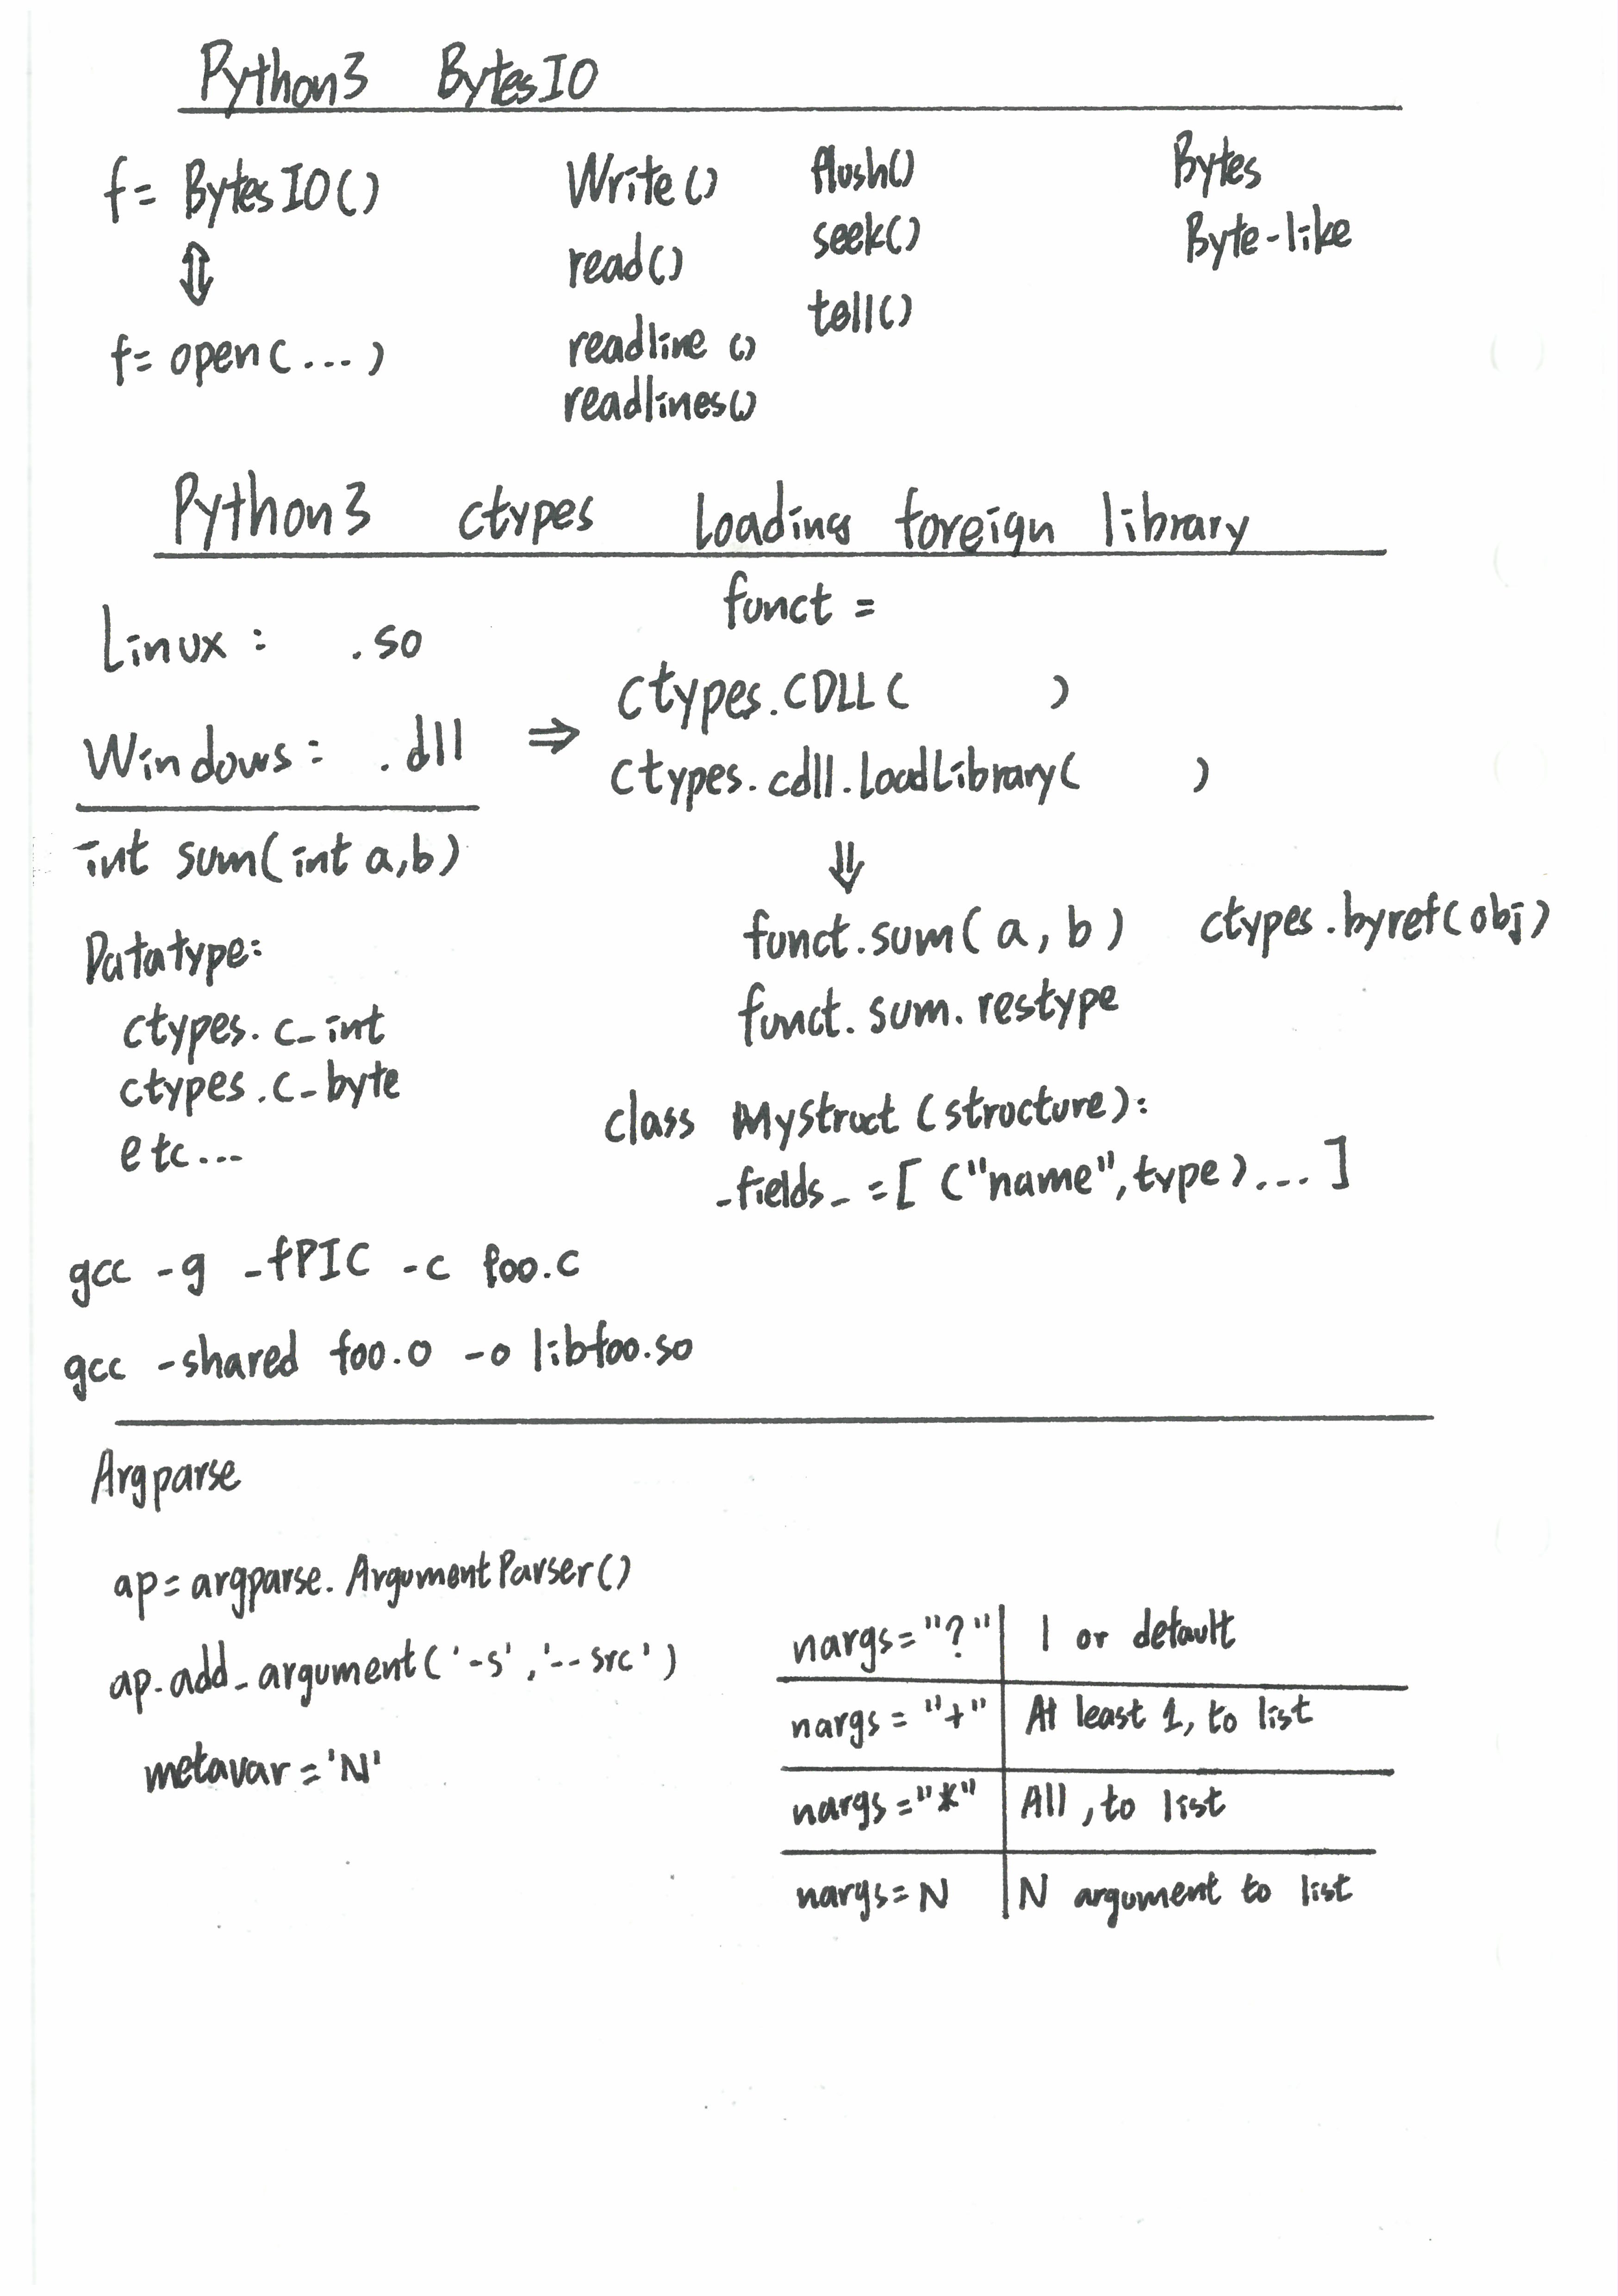 Python3 BytesIO
f= BytesIO()
⇕
f= open(...)
Write()
read()
readline ()
readlines()
flush()
seek()
tell()
Bytes
Byte-like
Python3 ctypes Loading foreign library
Linux: .so
Windows: .dll
⇒
funct =
ctypes.CDLL( )
ctypes.cdll.LoadLibrary( )
⇓
int sum(int a,b)
funct.sum(a, b) ctypes.byref(obj)
funct.sum.restype
Datatype:
ctypes.c_int
ctypes.c_byte
etc...
class MyStruct (structure):
_fields_=[ ("name",type)...]
gcc -g -fPIC -c foo.c
gcc -shared foo.o -o libfoo.so
Argparse
ap=argparse.ArgumentParser()
ap.add_argument('-s','--src')
metavar='N'
nargs="?" 1 or default
nargs="+" At least 1, to list
nargs="*" All, to list
nargs=N N argument to list